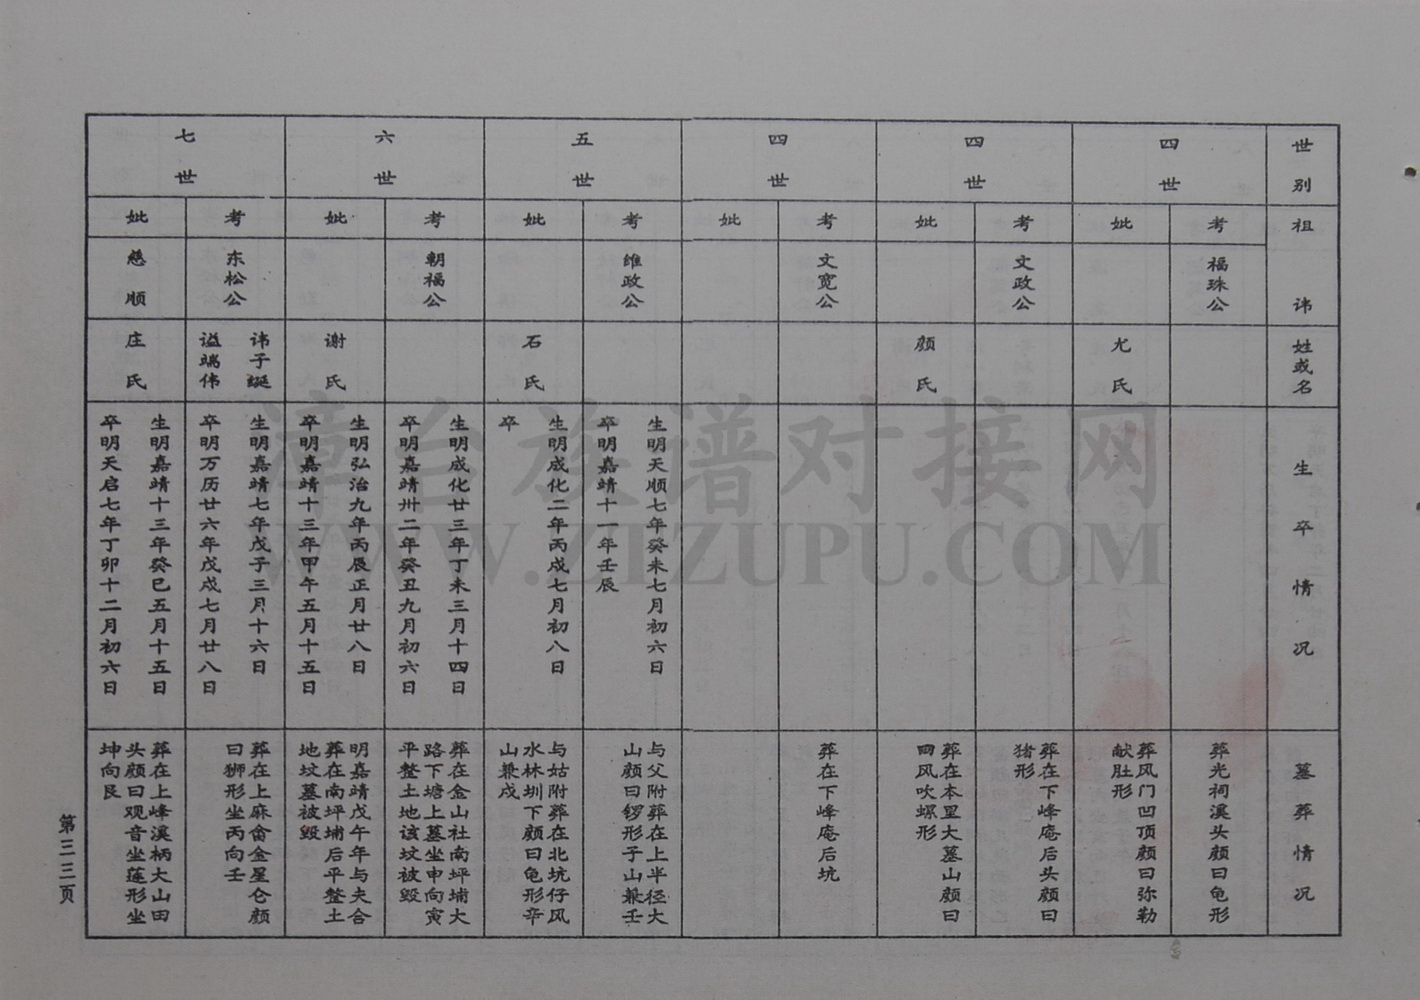 世别
祖讳
姓或名
生卒情况
墓葬情况
四世
考
福珠公
葬光祠溪头颜曰龟形
妣
尤氏
葬风门凹顶颜曰弥勒
献肚形
四世
考
文政公
葬在下峰庵后头颜曰
猪形
妣
颜氏
葬在本里大墓山颜曰
四风吹螺形
四世
考
文宽公
葬在下峰庵后坑
妣
五世
考
维政公
生明天顺七年癸未七月初六日
卒明嘉靖十一年壬辰
与父附葬在上半径大
山颜曰锣形子山兼壬
妣
石氏
生明成化二年丙戌七月初八日
卒
与姑附葬在北坑仔风
水林圳下颜曰龟形辛
山兼戌
六世
考
朝福公
生明成化廿三年丁未三月十四日
卒明嘉靖卅二年癸丑九月初六日
葬在金山社南坪埔大
路下塘上墓坐申向寅
平整土地该坟被毁
妣
谢氏
生明弘治九年丙辰正月廿八日
卒明嘉靖十三年甲午五月十五日
明嘉靖戊午年与夫合
葬在南坪埔后平整土
地坟墓被毁
七世
考
东松公
讳子诞
谥端伟
生明嘉靖七年戊子三月十六日
卒明万历廿六年戊戌七月廿八日
葬在上麻畲金星仑颜
曰狮形坐丙向壬
妣
慈顺
庄氏
生明嘉靖十三年癸巳五月十五日
卒明天启七年丁卯十二月初六日
葬在上峰溪柄大山田
头颜曰观音坐莲形坐
坤向艮
第三三页
漳台族谱对接网
WWW.ZIZUPU.COM